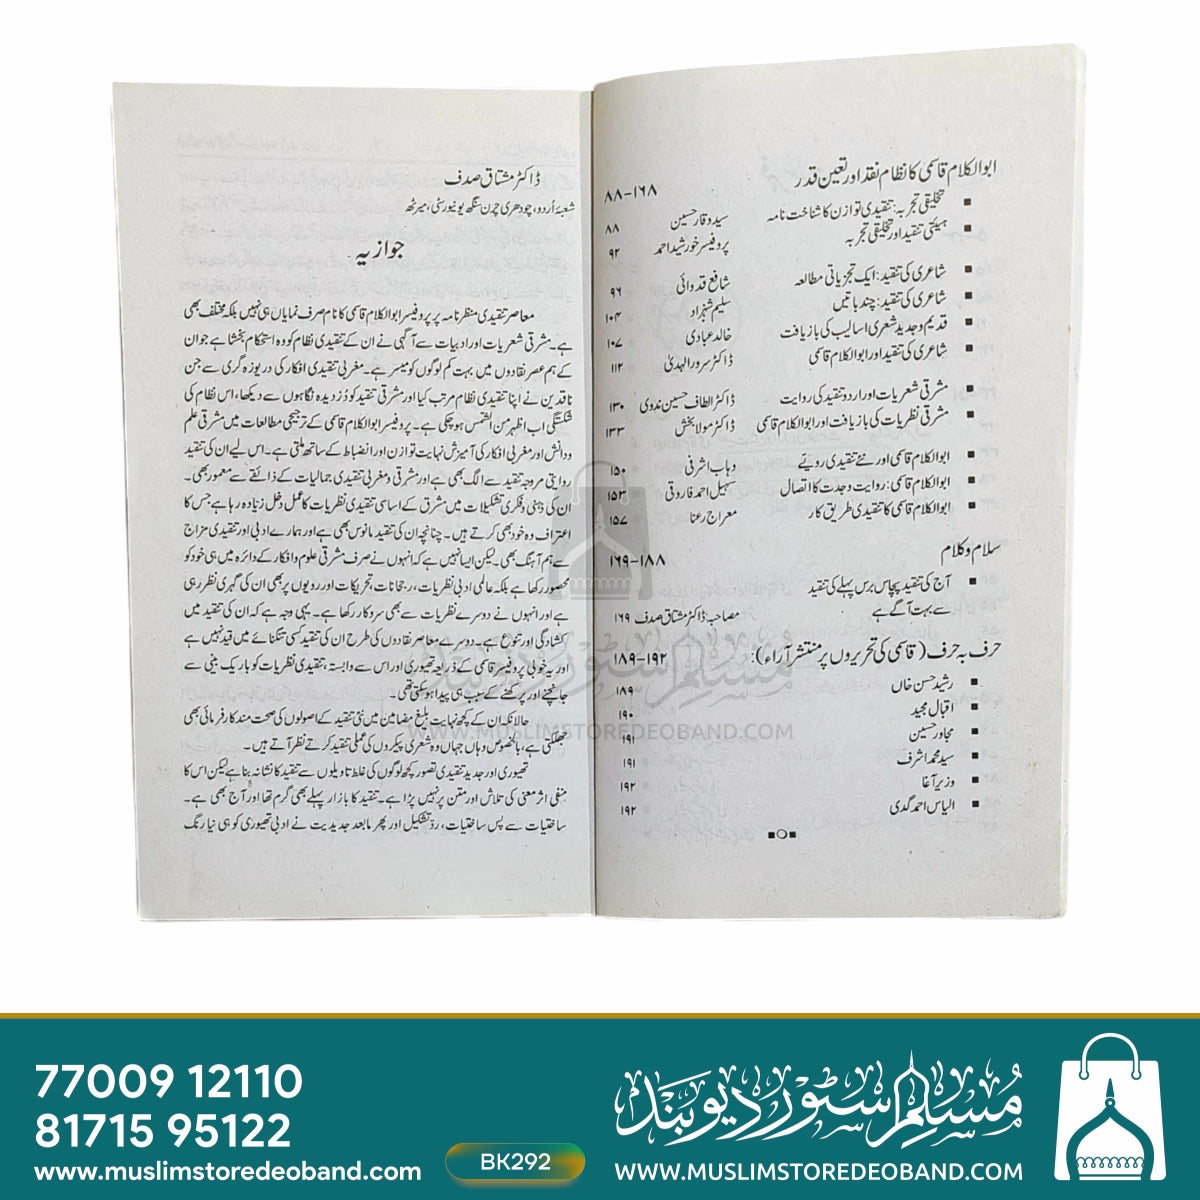 ابوالکلام قاسمی کا نظام نقد اور تعین قدر ۸۸-۱۶۸
▪ تخلیقی تجربہ: تنقیدی توازن کا شناخت نامہ سید وقار حسین ۸۸
▪ ہیئتی تنقید اور تخلیقی تجربہ پروفیسر خورشید احمد ۹۲
▪ شاعری کی تنقید: ایک تجزیاتی مطالعہ شافع قدوائی ۹۶
▪ شاعری کی تنقید: چند باتیں سلیم شہزاد ۱۰۴
▪ قدیم وجدید شعری اسالیب کی بازیافت خالد عبادی ۱۰۷
▪ شاعری کی تنقید اور ابوالکلام قاسمی ڈاکٹر سرور الہدیٰ ۱۱۲
▪ مشرقی شعریات اور اردو تنقید کی روایت ڈاکٹر الطاف حسین ندوی ۱۳۰
▪ مشرقی نظریات کی بازیافت اور ابوالکلام قاسمی ڈاکٹر مولا بخش ۱۳۳
▪ ابوالکلام قاسمی اور نئے تنقیدی رویّے وہاب اشرفی ۱۵۰
▪ ابوالکلام قاسمی: روایت وجدت کا اتصال سہیل احمد فاروقی ۱۵۳
▪ ابوالکلام قاسمی کا تنقیدی طریق کار معراج رعنا ۱۵۷
سلام وکلام ۱۶۹-۱۸۸
▪ آج کی تنقید پچاس برس پہلے کی تنقید
سے بہت آگے ہے مصاحبہ: ڈاکٹر مشتاق صدف ۱۶۹
حرف بہ حرف (قاسمی کی تحریروں پر منتشر آراء): ۱۸۹-۱۹۲
▪ رشید حسن خاں ۱۸۹
▪ اقبال مجید ۱۹۰
▪ مجاور حسین ۱۹۱
▪ سید محمد اشرف ۱۹۱
▪ وزیر آغا ۱۹۲
▪ الیاس احمد گدی ۱۹۲
ڈاکٹر مشتاق صدف
شعبۂ اُردو، چودھری چرن سنگھ یونیورسٹی، میرٹھ
جوازیہ
معاصر تنقیدی منظر نامہ پر پروفیسر ابوالکلام قاسمی کا نام صرف نمایاں ہی نہیں بلکہ مختلف بھی
ہے۔ مشرقی شعریات اور ادبیات سے آگہی نے ان کے تنقیدی نظام کو وہ استحکام بخشا ہے جو ان
کے ہم عصر نقادوں میں بہت کم لوگوں کو میسر ہے۔ مغربی تنقیدی افکار کی دریوزہ گری سے جن
ناقدین نے اپنا تنقیدی نظام مرتب کیا اور مشرقی تنقید کو دُزدیدہ نگاہوں سے دیکھا، اس نظام کی
شکستگی اب اظہر من الشمس ہو چکی ہے۔ پروفیسر ابوالکلام قاسمی کے ترجیحی مطالعات میں مشرقی علم
ودانش اور مغربی افکار کی آمیزش نہایت توازن اور انضباط کے ساتھ ملتی ہے۔ اس لیے ان کی تنقید
روایتی مروجہ تنقید سے الگ بھی ہے اور مشرقی ومغربی تنقیدی جمالیات کے ذائقے سے معمور بھی۔
ان کی ذہنی وفکری تشکیلات میں مشرق کے اساسی تنقیدی نظریات کا عمل دخل زیادہ رہا ہے جس کا
اعتراف وہ خود بھی کرتے ہیں۔ چنانچہ ان کی تنقید مانوس بھی ہے اور ہمارے ادبی اور تنقیدی مزاج
سے ہم آہنگ بھی۔ لیکن ایسا نہیں ہے کہ انہوں نے صرف مشرقی علوم وافکار کے دائرہ میں ہی خود کو
محصور رکھا ہے بلکہ عالمی ادبی نظریات، رجحانات، تحریکات اور رویوں پر بھی ان کی گہری نظر رہی
ہے اور انہوں نے دوسرے نظریات سے بھی سروکار رکھا ہے۔ یہی وجہ ہے کہ ان کی تنقید میں
کشادگی اور تنوع ہے۔ دوسرے معاصر نقادوں کی طرح ان کی تنقید کسی تنگنائے میں قید نہیں ہے
اور یہ خوبی پروفیسر قاسمی کے ذریعہ تھیوری اور اس سے وابستہ تنقیدی نظریات کو باریک بینی سے
جانچنے اور پرکھنے کے سبب ہی پیدا ہو سکتی تھی۔
حالانکہ ان کے کچھ نہایت بلیغ مضامین میں نئی تنقید کے اصولوں کی صحت مند کارفرمائی بھی
جھلکتی ہے، بالخصوص وہاں جہاں وہ شعری پیکروں کی عملی تنقید کرتے نظر آتے ہیں۔
تھیوری اور جدید تنقیدی تصور کچھ لوگوں کی غلط تاویلوں سے تنقید کا نشانہ بنا ہے لیکن اس کا
منفی اثر معنی کی تلاش اور متن پر نہیں پڑا ہے۔ تنقید کا بازار پہلے بھی گرم تھا اور آج بھی ہے۔
ساختیات سے پس ساختیات، ردّتشکیل اور پھر مابعد جدیدیت نے ادبی تھیوری کو ہی نیا رنگ
مسلم سٹور دیوبند
WWW.MUSLIMSTOREDEOBAND.COM
77009 12110
81715 95122
www.muslimstoredeoband.com
BK292
مسلم سٹور دیوبند
WWW.MUSLIMSTOREDEOBAND.COM